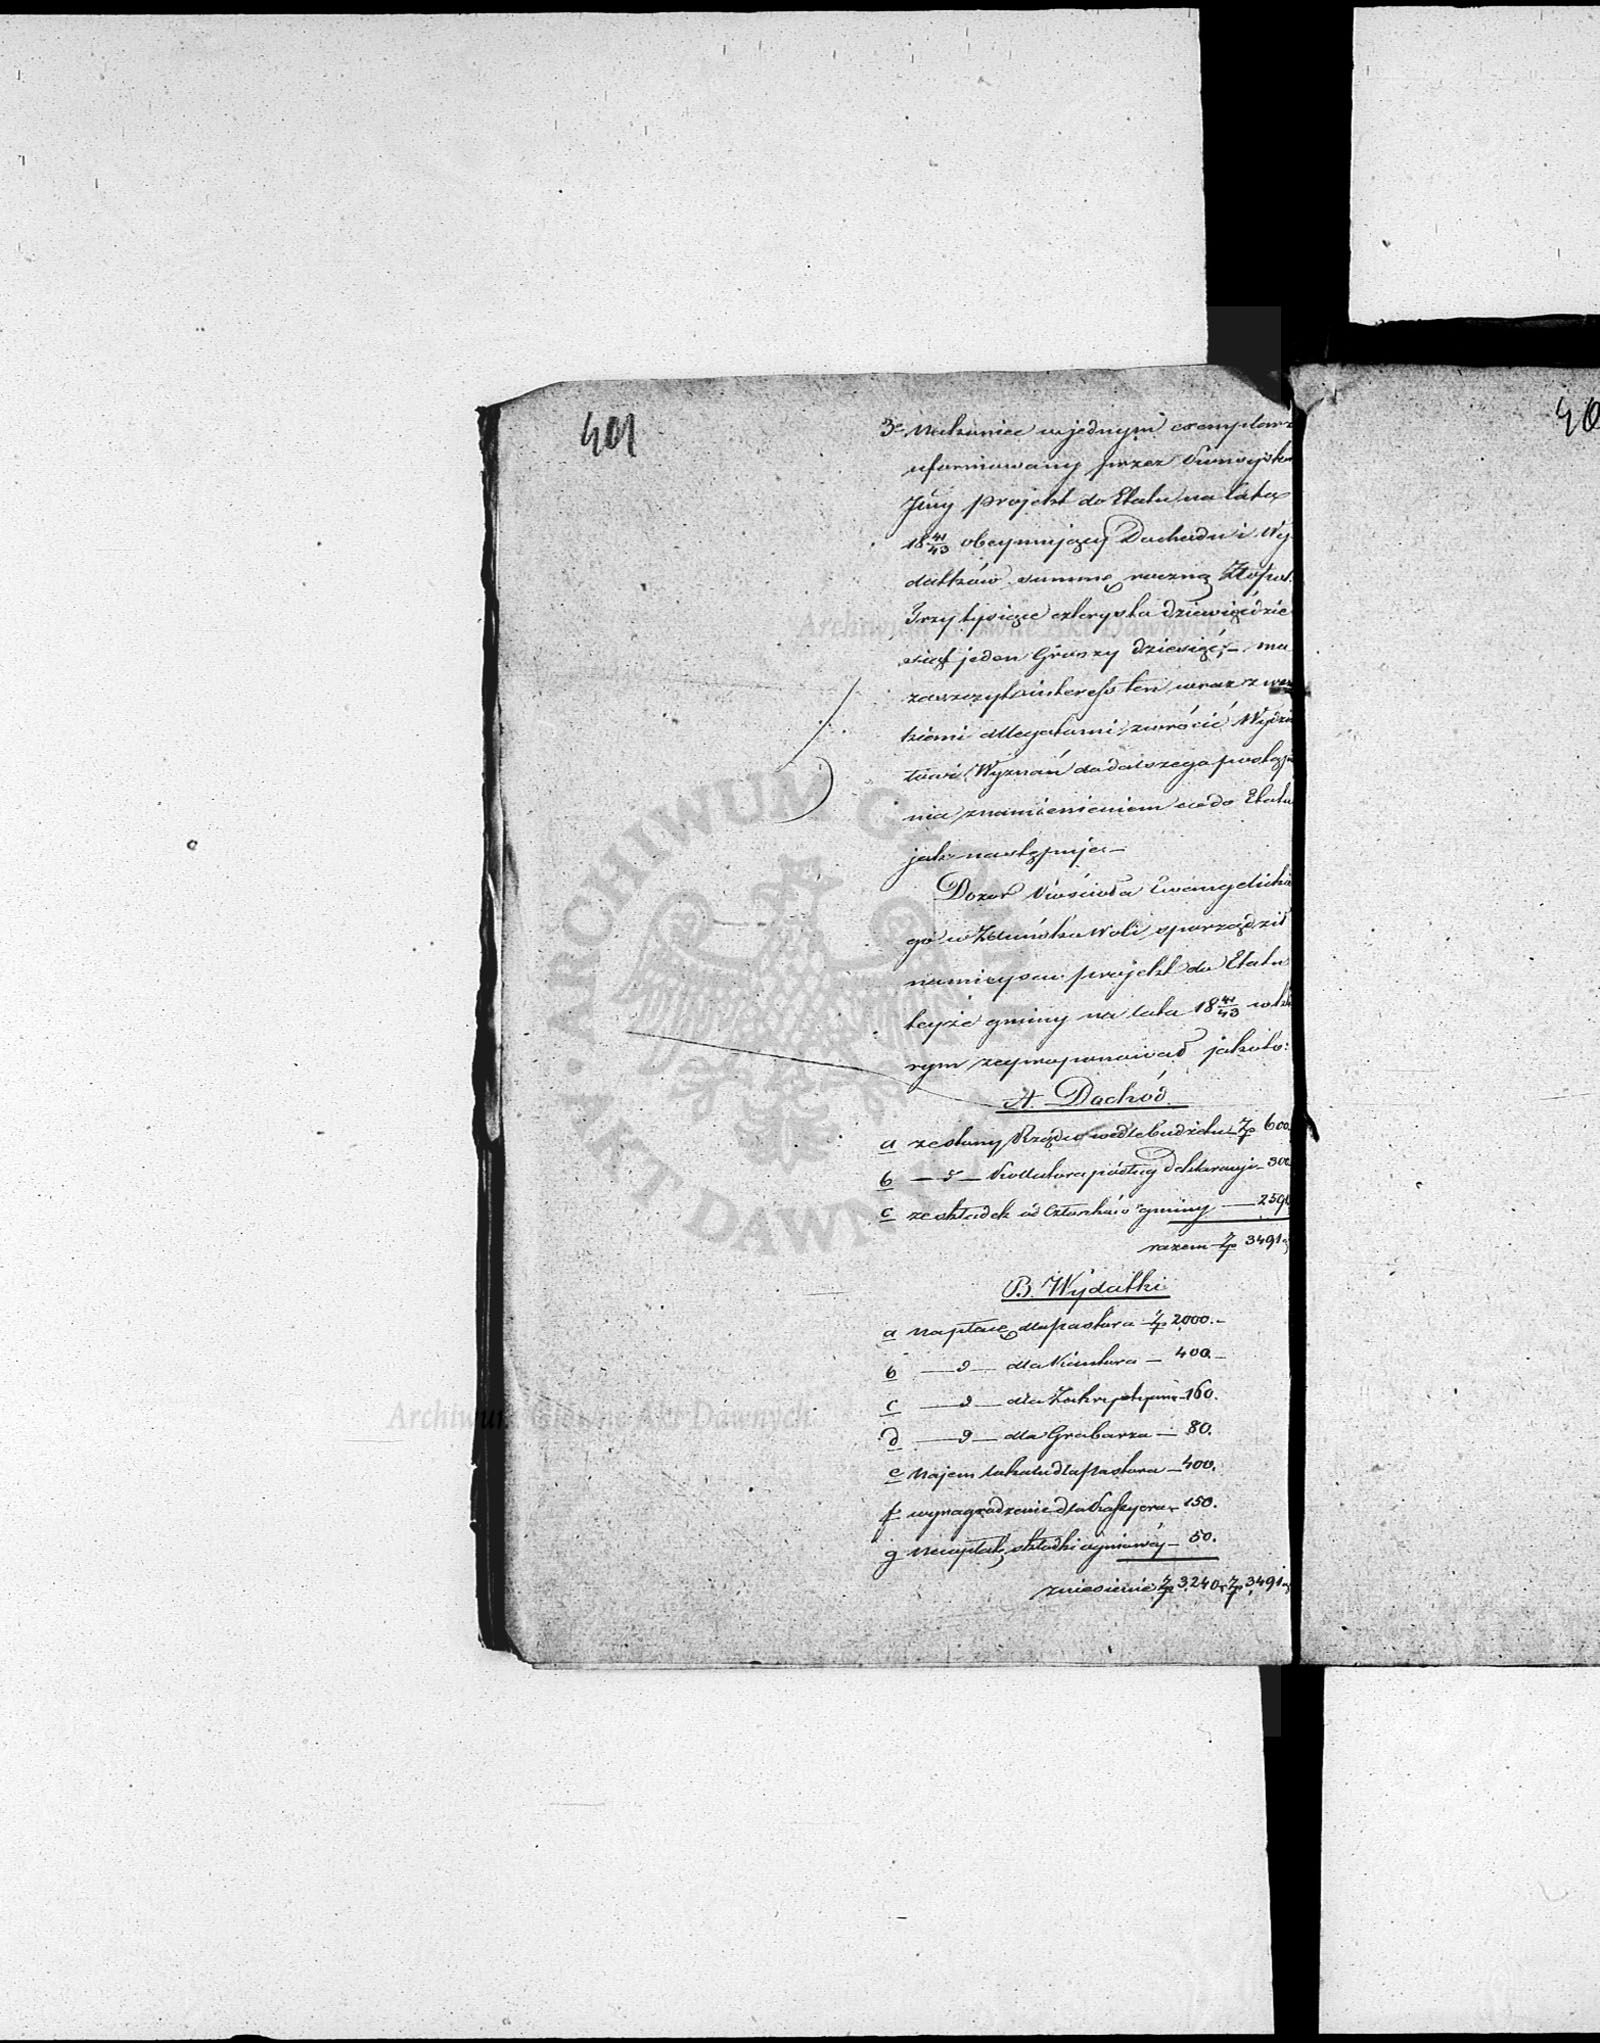 401
40
3e Nakoniec w jednym exemplarz
uformowany przez
projekt do Etatu na lata
18 41/43 obeymujący Dochodu i Wy
datków summę roczną Złotpol.
Trzy tysiące czterysta dziewiędzie
siąt jeden Groszy dziesięć – ma
zaszczyt interess ten wraz z
kiemi allegatami zwrócić Wydzia
łowi Wyznań do dalszego postąpie
nia znamienieniem co do Etatu
jak następuje –
Dozor Kościoła Ewangelickie
go w Zduńska Woli sporządził
na mieyscu projekt do Etatu
teyże gminy na lata 18 41/43 w któ
rym zaproponował jakoto:
A. Dochód
a ze strony Rządu wedle Budżetu Zp 600
b — " — Kollatora podług Deklaracyi – 300
c ze składek od Członków gminy — 259
razem Zp 3491
B. Wydatki
a Na płacę dla pastora – Zp 2000. –
b — " — dla Kantora – 400. –
c — " — dla Zakrystyana – 160.
d — " — dla Grabarza – 80.
e Najem lokalu dla pastora – 400.
f wynagrodzenie dla Kassyera – 150.
g składki ogniowéy – 50.
zniesienie Zp 3240 Zp 3491
ARCHIWUM GŁÓWNE AKT DAWNYCH
Archiwum Główne Akt Dawnych
Archiwum Główne Akt Dawnych